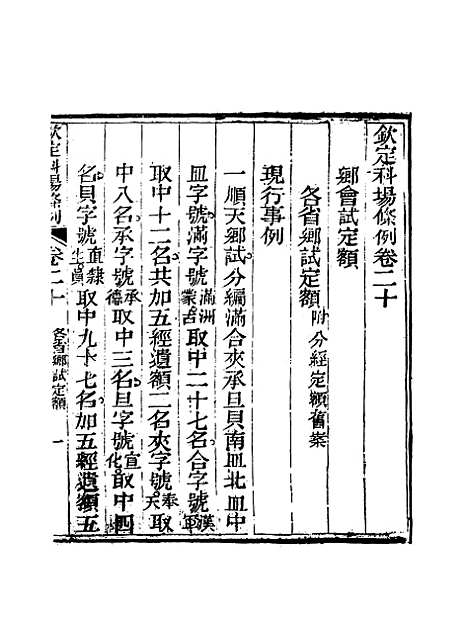 欽定科場條例卷二十
鄉會試定額
各省鄉試定額附分經定額舊案
現行事例
一順天鄉試分編滿合夾承旦貝南皿北皿中
皿字號滿字號滿洲蒙古取中二十七名合字號漢軍
取中十二名共加五經遺額二名夾字號奉天取
中八名承字號承德取中三名旦字號宣化取中四
名貝字號直隸生員取中九十七名加五經遺額五
欽定科場條例 卷二十 各省鄉試定額 一